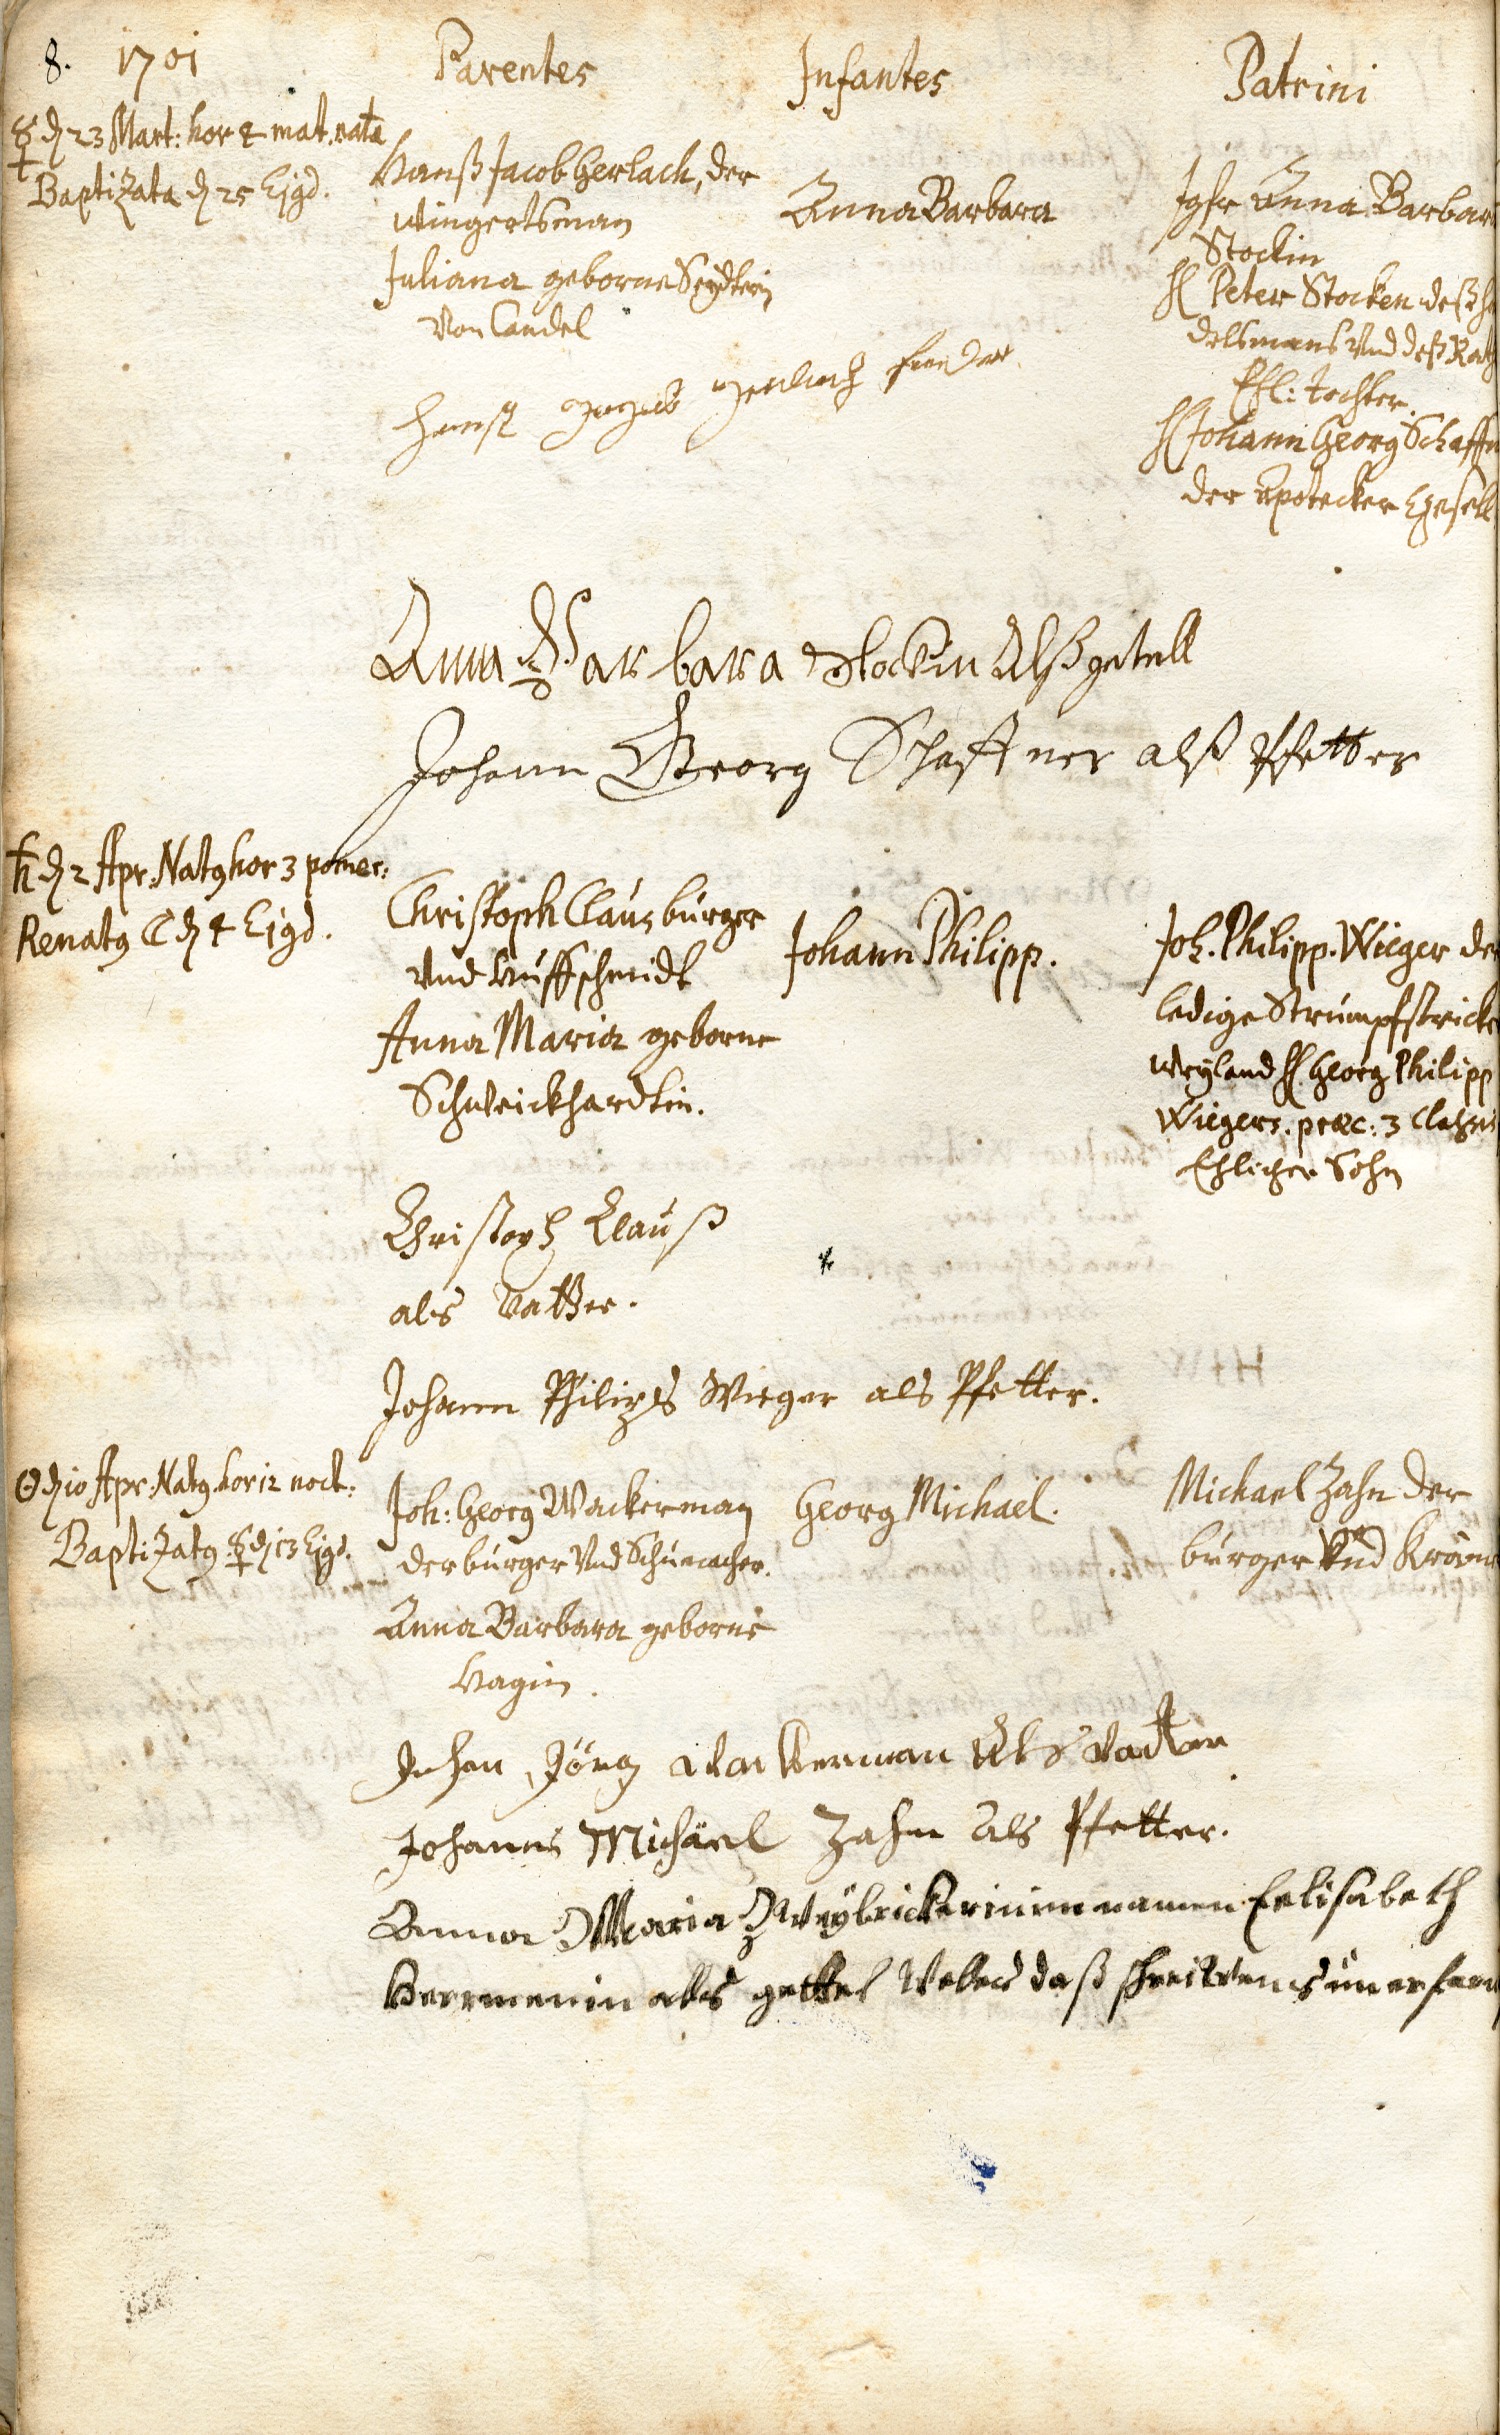 8. 1701
Parentes
Infantes
Patrini
☿ d 23 Mart: hor 4 mat. nata
Baptizata d 25 Ejgd.
Hanß Jacob Gerlach, der
wingertsman
Juliana geborne Seydlerin
von Candel
Anna Barbara
Jgfr Anna Barbar
Stockin
H Peter Stocken deß ha
delsmans und deß Rath
Ehl: Tochter.
H Johann Georg Schaffn
der Apotecker Gesell
Hanß Jacob Gerlach
Anna Barbara Stockin Alß getell
Johann Georg Schaffner alß Pfetter
♄ d 2 Apr. Natg hor 3 pomer:
Renatg ☾ d 4 Ejgd.
Christoph Claus burger
und Huffschmidt
Anna Maria geborne
Schweickhardtin.
Johann Philipp.
Joh. Philipp. Wieger der
ledige Strumpfstricke
weyland H. Georg Philipp
Wiegers. præc: 3 Classis
Ehlicher Sohn
Christoph Clauß
als Vatter.
Johann Philips Wieger als Pfetter.
☉ d 10 Apr. Natg. hor 12 noct:
Baptizatg ☿ d 13 Ejgd.
Joh: Georg Wackerman
der burger und Schumacher.
Anna Barbara geborne
Hagin.
Georg Michael.
Michael Zahn der
burger und Kräme
Johan Jörg Wackerman Als vatter
Johannes Michäel Zahn Als Pfetter.
Anna Maria Zweybrickerin im namen Eelisabeth
Herrmenin als gettel Welch daß schreibens unerfare